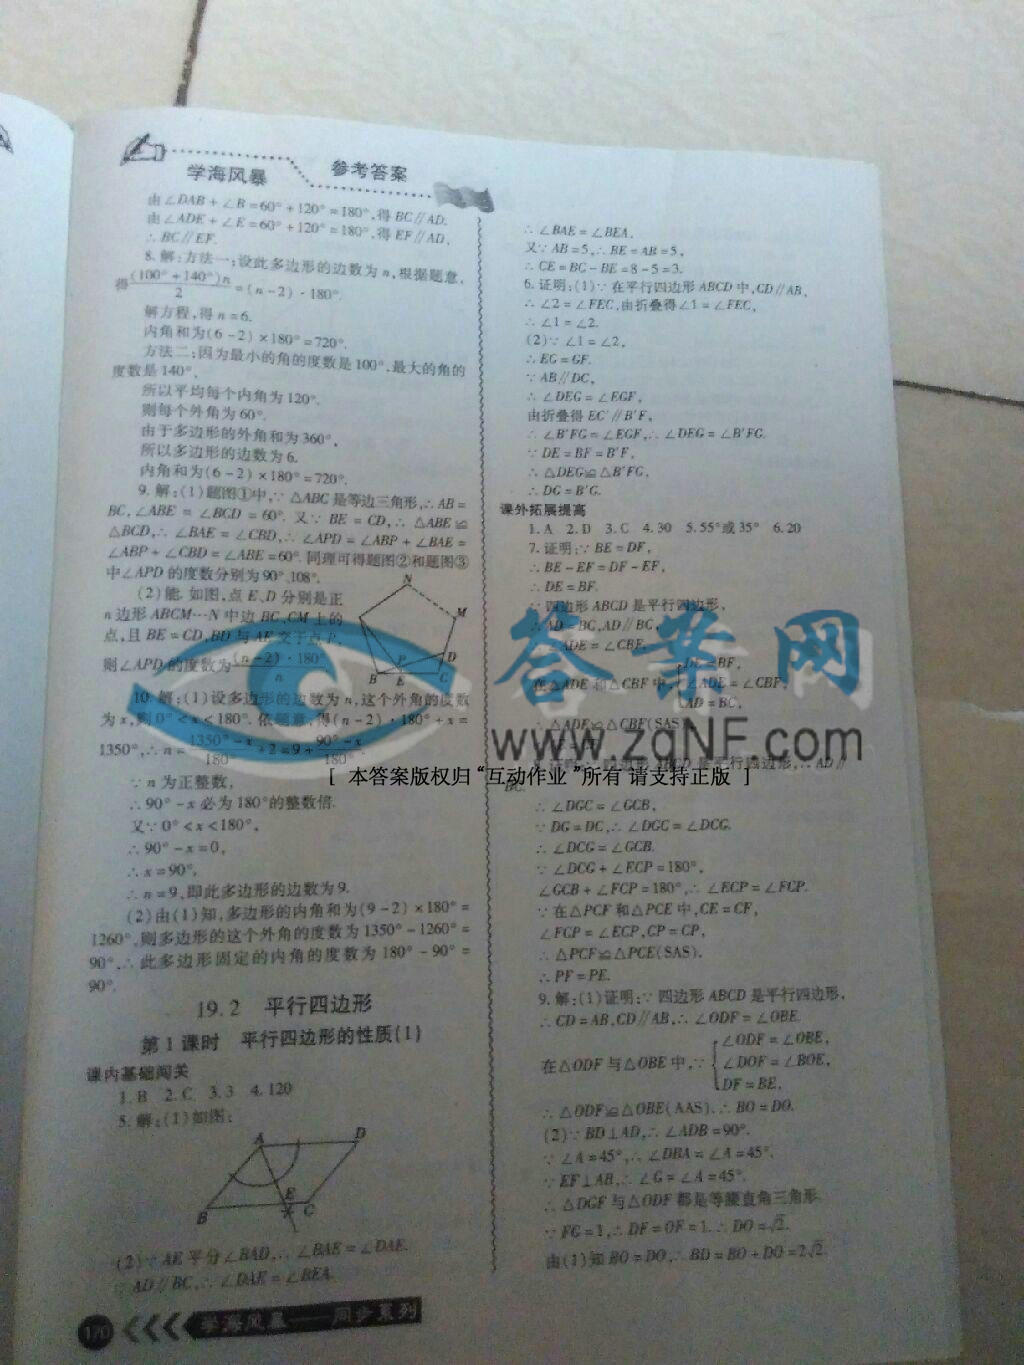 学海风暴
参考答案
由∠DAB+∠B=60°+120°=180°,得BC∥AD.
由∠ADE+∠E=60°+120°=180°,得EF∥AD,
∴BC∥EF.
8.解:方法一:设此多边形的边数为n,根据题意,
得(100°+140°)n/2=(n-2)·180°.
解方程,得n=6.
内角和为(6-2)×180°=720°.
方法二:因为最小的角的度数是100°,最大的角的
度数是140°,
所以平均每个内角为120°.
则每个外角为60°.
由于多边形的外角和为360°,
所以多边形的边数为6.
内角和为(6-2)×180°=720°.
9.解:(1)题图①中,∵△ABC是等边三角形,∴AB=
BC,∠ABE=∠BCD=60°.又∵BE=CD,∴△ABE≌
△BCD,∴∠BAE=∠CBD,∴∠APD=∠ABP+∠BAE=
∠ABP+∠CBD=∠ABE=60°.同理可得题图②和题图③
中∠APD的度数分别为90°,108°.
(2)能.如图,点E、D分别是正
n边形ABCM…N中边BC,CM上的
点,且BE=CD,BD与AE交于点P,
则∠APD的度数为(n-2)·180°/n
N
M
D
P
B E C
10.解:(1)设多边形的边数为n,这个外角的度数
为x,则0°<x<180°.依题意,得(n-2)·180°+x=
1350°,∴n=1350°-x/180°+2=9+90°-x/180°.
∵n为正整数,
∴90°-x必为180°的整数倍.
又∵0°<x<180°,
∴90°-x=0,
∴x=90°,
∴n=9,即此多边形的边数为9.
(2)由(1)知,多边形的内角和为(9-2)×180°=
1260°,则多边形的这个外角的度数为1350°-1260°=
90°,∴此多边形固定的内角的度数为180°-90°=
90°.
19.2 平行四边形
第1课时 平行四边形的性质(1)
课内基础闯关
1.B 2.C 3.3 4.120
5.解:(1)如图:
A D
B E C
(2)∵AE平分∠BAD,∴∠BAE=∠DAE.
∵AD∥BC,∴∠DAE=∠BEA.
170
学海风暴——同步系列
∴∠BAE=∠BEA.
又∵AB=5,∴BE=AB=5,
∴CE=BC-BE=8-5=3.
6.证明:(1)∵在平行四边形ABCD中,CD∥AB,
∴∠2=∠FEC,由折叠得∠1=∠FEC,
∴∠1=∠2.
(2)∵∠1=∠2,
∴EG=GF.
∵AB∥DC,
∴∠DEG=∠EGF,
由折叠得EC′∥B′F,
∴∠B′FG=∠EGF,∴∠DEG=∠B′FG.
∵DE=BF=B′F,
∴△DEG≌△B′FG,
∴DG=B′G.
课外拓展提高
1.A 2.D 3.C 4.30 5.55°或35° 6.20
7.证明:∵BE=DF,
∴BE-EF=DF-EF,
∴DE=BF.
∵四边形ABCD是平行四边形,
∴AD=BC,AD∥BC,
∴∠ADE=∠CBF,
DE=BF,
在△ADE和△CBF中,∠ADE=∠CBF,
AD=BC,
∴△ADE≌△CBF(SAS)
四边形ABCD是平行四边形,∴AD∥
BC.
∴∠DGC=∠GCB,
∵DG=DC,∴∠DGC=∠DCG.
∴∠DCG=∠GCB.
∵∠DCG+∠ECP=180°,
∠GCB+∠FCP=180°,∴∠ECP=∠FCP.
∵在△PCF和△PCE中,CE=CF,
∠FCP=∠ECP,CP=CP,
∴△PCF≌△PCE(SAS).
∴PF=PE.
9.解:(1)证明:∵四边形ABCD是平行四边形,
∴CD=AB,CD∥AB,∴∠ODF=∠OBE.
∠ODF=∠OBE,
在△ODF与△OBE中,∵∠DOF=∠BOE,
DF=BE,
∴△ODF≌△OBE(AAS).∴BO=DO.
(2)∵BD⊥AD,∴∠ADB=90°.
∵∠A=45°,∴∠DBA=∠A=45°.
∵EF⊥AB,∴∠G=∠A=45°.
∴△DGF与△ODF都是等腰直角三角形.
∵FG=1,∴DF=OF=1.∴DO=√2.
由(1)知BO=DO,∴BD=BO+DO=2√2.
答案网
www.zqNF.com
[ 本答案版权归“互动作业”所有 请支持正版 ]